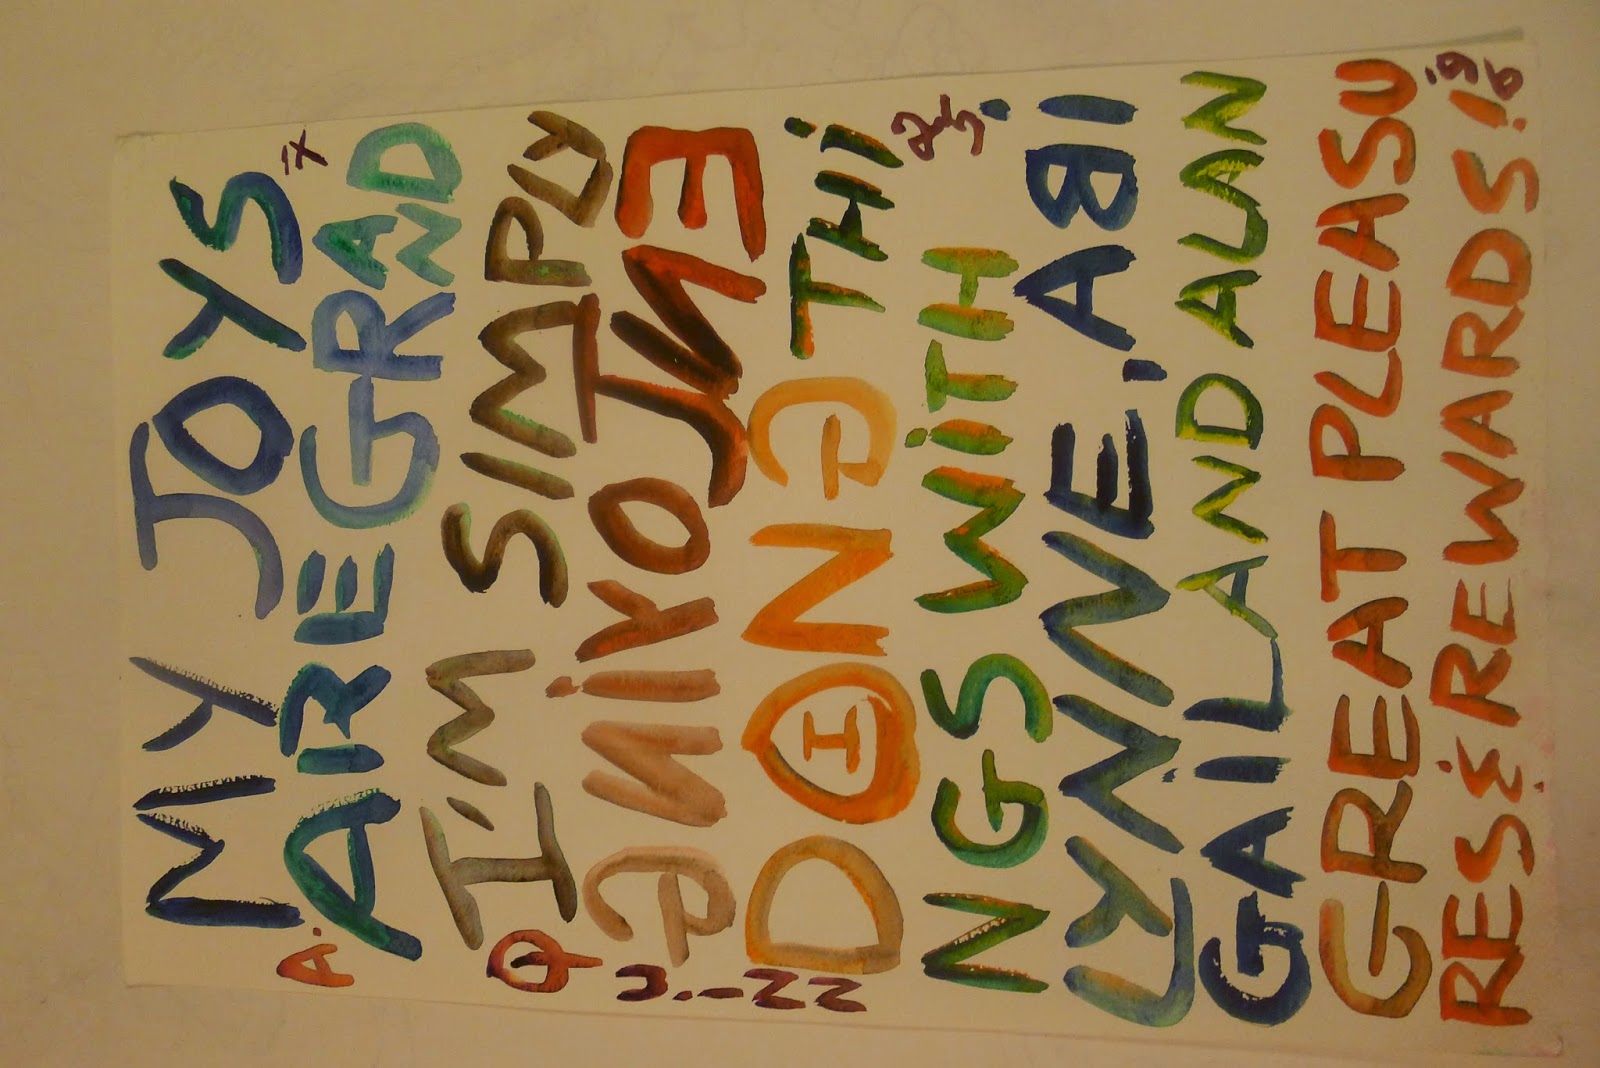 MY JOYS
ARE GRAND
I'M SIMPLY
GNiYOJNE
DOING THi
NGS WiTH
LYNNE, ABI
GAiL AND ALAN
GREAT PLEASU
RES & REWARDS!